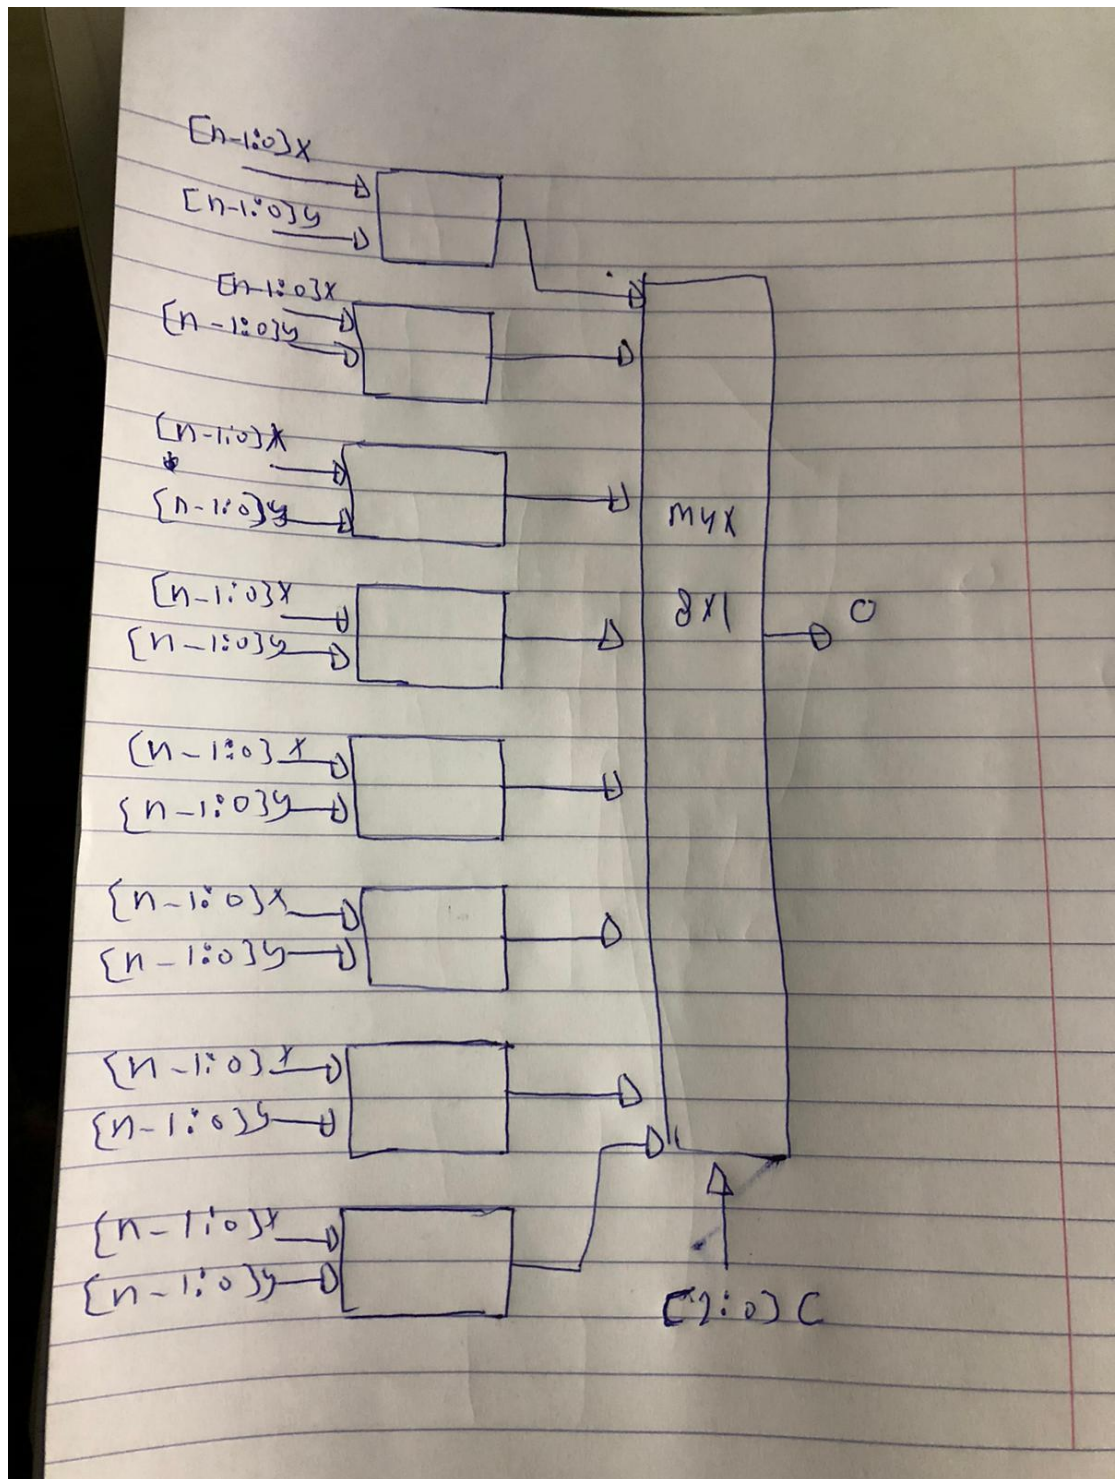 [n-1:0]x
[n-1:0]y
[n-1:0]x
[n-1:0]y
[n-1:0]x
[n-1:0]y
mux
[n-1:0]x
8x1
O
[n-1:0]y
[n-1:0]x
[n-1:0]y
[n-1:0]x
[n-1:0]y
[n-1:0]x
[n-1:0]y
[n-1:0]x
[n-1:0]y
[2:0]C